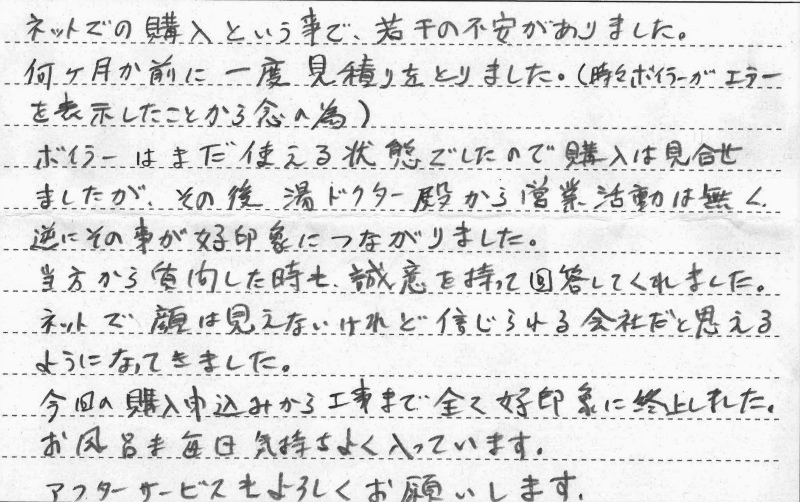 ネットでの購入という事で、若干の不安がありました。
何ヶ月か前に一度見積りをとりました。(時々ボイラーがエラー
を表示したことから念の為)
ボイラーはまだ使える状態でしたので購入は見合せ
ましたが、その後湯ドクター殿から営業活動は無く、
逆にその事が好印象につながりました。
当方から質問した時も誠意を持って回答してくれました。
ネットで顔は見えないけれど信じられる会社だと思える
ようになってきました。
今回の購入申込みから工事まで全て好印象に終止しました。
お風呂も毎日気持ちよく入っています。
アフターサービスもよろしくお願いします。